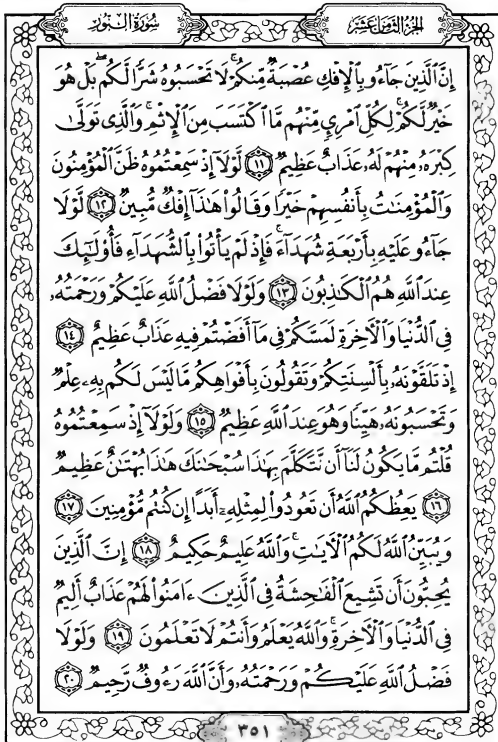 سُورَةُ النُّورِ
الجُزْءُ الثَّامِنَ عَشَرَ
إِنَّ الَّذِينَ جَآءُو بِالْإِفْكِ عُصْبَةٌ مِّنكُمْ ۚ لَا تَحْسَبُوهُ شَرًّا لَّكُم ۖ بَلْ هُوَ
خَيْرٌ لَّكُمْ ۚ لِكُلِّ ٱمْرِئٍ مِّنْهُم مَّا ٱكْتَسَبَ مِنَ ٱلْإِثْمِ ۚ وَٱلَّذِى تَوَلَّىٰ
كِبْرَهُۥ مِنْهُمْ لَهُۥ عَذَابٌ عَظِيمٌ ۝١١ لَّوْلَآ إِذْ سَمِعْتُمُوهُ ظَنَّ ٱلْمُؤْمِنُونَ
وَٱلْمُؤْمِنَٰتُ بِأَنفُسِهِمْ خَيْرًا وَقَالُوا۟ هَٰذَآ إِفْكٌ مُّبِينٌ ۝١٢ لَّوْلَا
جَآءُو عَلَيْهِ بِأَرْبَعَةِ شُهَدَآءَ ۚ فَإِذْ لَمْ يَأْتُوا۟ بِٱلشُّهَدَآءِ فَأُو۟لَٰٓئِكَ
عِندَ ٱللَّهِ هُمُ ٱلْكَٰذِبُونَ ۝١٣ وَلَوْلَا فَضْلُ ٱللَّهِ عَلَيْكُمْ وَرَحْمَتُهُۥ
فِى ٱلدُّنْيَا وَٱلْءَاخِرَةِ لَمَسَّكُمْ فِى مَآ أَفَضْتُمْ فِيهِ عَذَابٌ عَظِيمٌ ۝١٤
إِذْ تَلَقَّوْنَهُۥ بِأَلْسِنَتِكُمْ وَتَقُولُونَ بِأَفْوَاهِكُم مَّا لَيْسَ لَكُم بِهِۦ عِلْمٌ
وَتَحْسَبُونَهُۥ هَيِّنًا وَهُوَ عِندَ ٱللَّهِ عَظِيمٌ ۝١٥ وَلَوْلَآ إِذْ سَمِعْتُمُوهُ
قُلْتُم مَّا يَكُونُ لَنَآ أَن نَّتَكَلَّمَ بِهَٰذَا سُبْحَٰنَكَ هَٰذَا بُهْتَٰنٌ عَظِيمٌ
۝١٦ يَعِظُكُمُ ٱللَّهُ أَن تَعُودُوا۟ لِمِثْلِهِۦٓ أَبَدًا إِن كُنتُم مُّؤْمِنِينَ ۝١٧
وَيُبَيِّنُ ٱللَّهُ لَكُمُ ٱلْءَايَٰتِ ۚ وَٱللَّهُ عَلِيمٌ حَكِيمٌ ۝١٨ إِنَّ ٱلَّذِينَ
يُحِبُّونَ أَن تَشِيعَ ٱلْفَٰحِشَةُ فِى ٱلَّذِينَ ءَامَنُوا۟ لَهُمْ عَذَابٌ أَلِيمٌ
فِى ٱلدُّنْيَا وَٱلْءَاخِرَةِ ۚ وَٱللَّهُ يَعْلَمُ وَأَنتُمْ لَا تَعْلَمُونَ ۝١٩ وَلَوْلَا
فَضْلُ ٱللَّهِ عَلَيْكُمْ وَرَحْمَتُهُۥ وَأَنَّ ٱللَّهَ رَءُوفٌ رَّحِيمٌ ۝٢٠
٣٥١